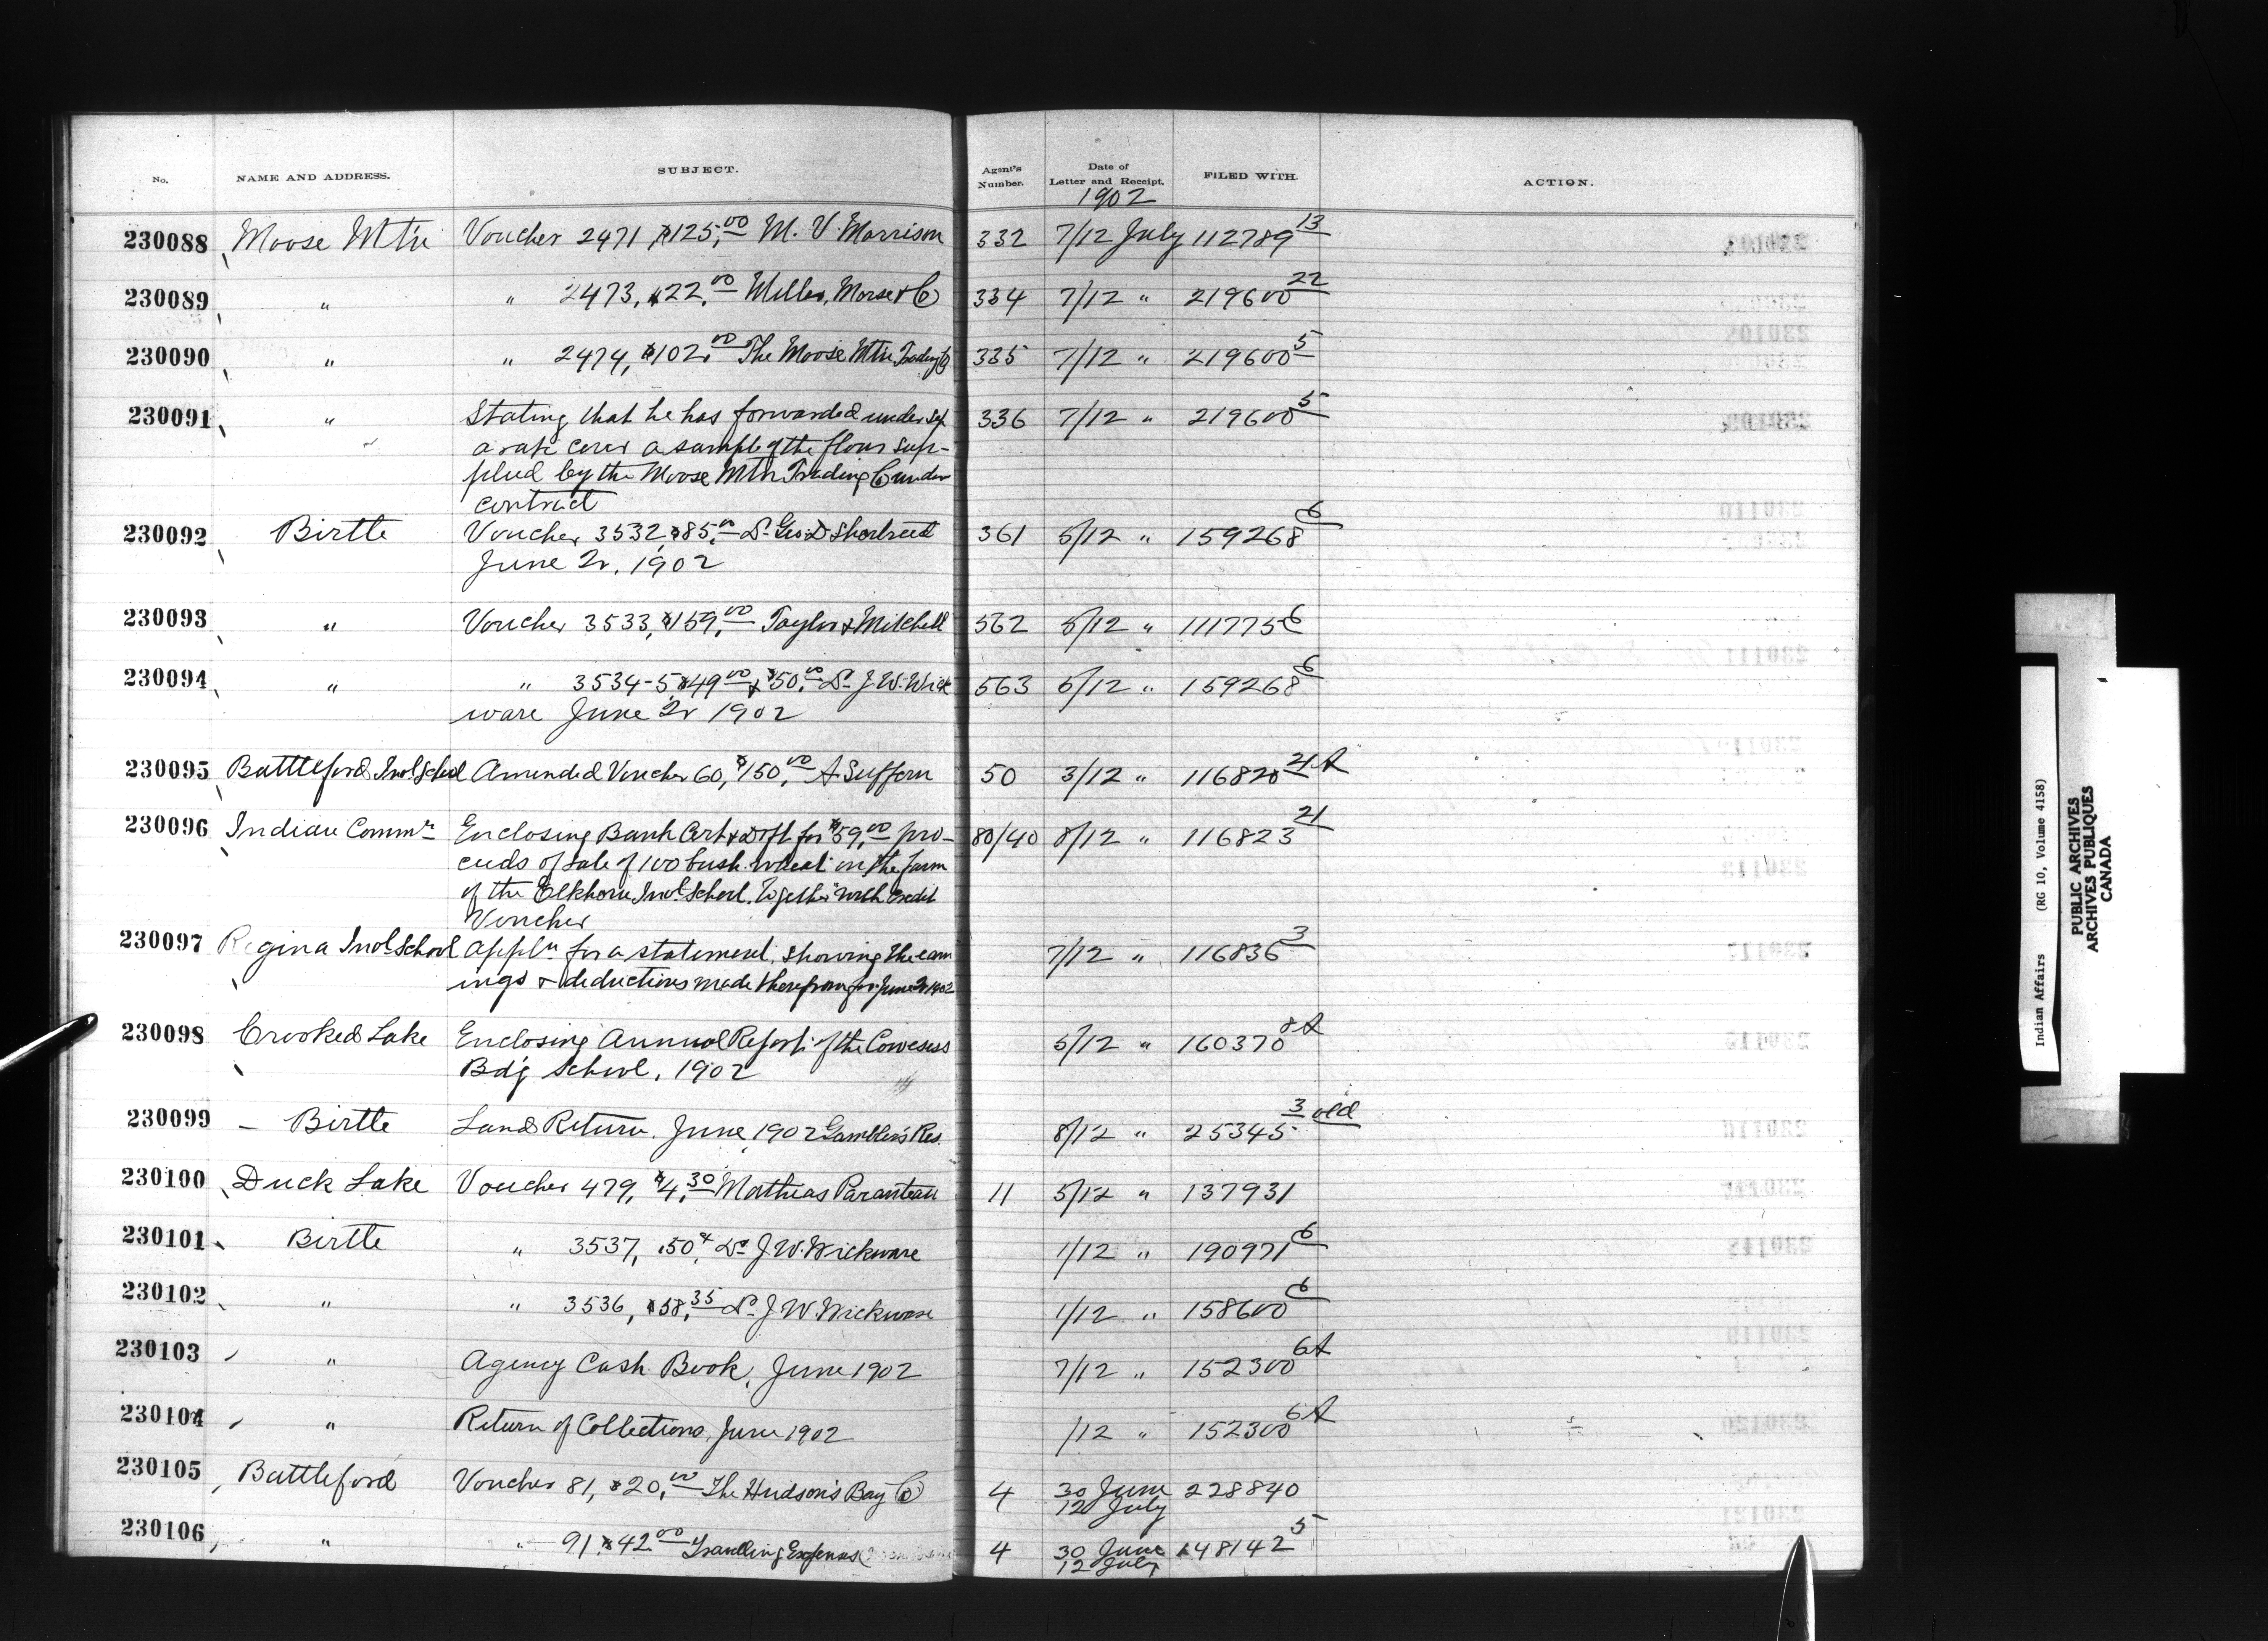 No. NAME AND ADDRESS. SUBJECT. Agent's Number. Date of Letter and Receipt. FILED WITH. ACTION.
1902
230088 Moose Mtn Voucher 2471, $125.00 M. V. Morrison 332 7/12 July 112789 13
230089 " " 2473, $22.00 Miller, Morse & Co 334 7/12 " 219600 22
230090 " " 2474, $102.00 The Moose Mtn Trading Co 335 7/12 " 219600 5
230091 " Stating that he has forwarded under sep 336 7/12 " 219600 5
arate cover a sample of the flour sup-
plied by the Moose Mtn Trading Co under
contract
230092 Birtle Voucher 3532, $85.00 Dr Geo D Shortreed 361 5/12 " 159268 6
June Qr. 1902
230093 " Voucher 3533, $159.00 Taylor & Mitchell 562 5/12 " 111775 6
230094 " " 3534-5, $49.00 & $50.00 Dr J. W. Wick 563 5/12 " 159268 6
ware June Qr 1902
230095 Battleford Indl School Amended Voucher 60, $150.00 A Suffern 50 3/12 " 116820 21A
230096 Indian Commr Enclosing Bank Cert & Dft for $59.00 pro- 80/40 8/12 " 116823 21
ceeds of sale of 100 bush. wheat on the farm
of the Elkhorn Indl School, together with credit
Voucher
230097 Regina Indl School Appln for a statement, showing the earn 7/12 " 116836 3
ings & deductions made therefrom for June Qr 1902
230098 Crooked Lake Enclosing Annual Report of the Cowesess 5/12 " 160370 8A
Bd'g School, 1902
230099 Birtle Land Return, June, 1902 Gambler's Res. 8/12 " 25345 3 old
230100 Duck Lake Voucher 479, $4.30 Mathias Paranteau 11 5/12 " 137931
230101 Birtle " 3537, .50¢, Dr J. W. Wickware 1/12 " 190971 6
230102 " " 3536, $58.35 Dr J W. Wickware 1/12 " 158600 6
230103 " Agency Cash Book, June 1902 7/12 " 152300 6A
230104 " Return of Collections, June 1902 /12 " 152300 6A
230105 Battleford Voucher 81, $20.00 The Hudson's Bay Co 4 30 June 228840
12 July
230106 " " 91, $42.00 Travelling Expenses 4 30 June 148142 5
12 July
Indian Affairs (RG 10, Volume 4158)
PUBLIC ARCHIVES
ARCHIVES PUBLIQUES
CANADA